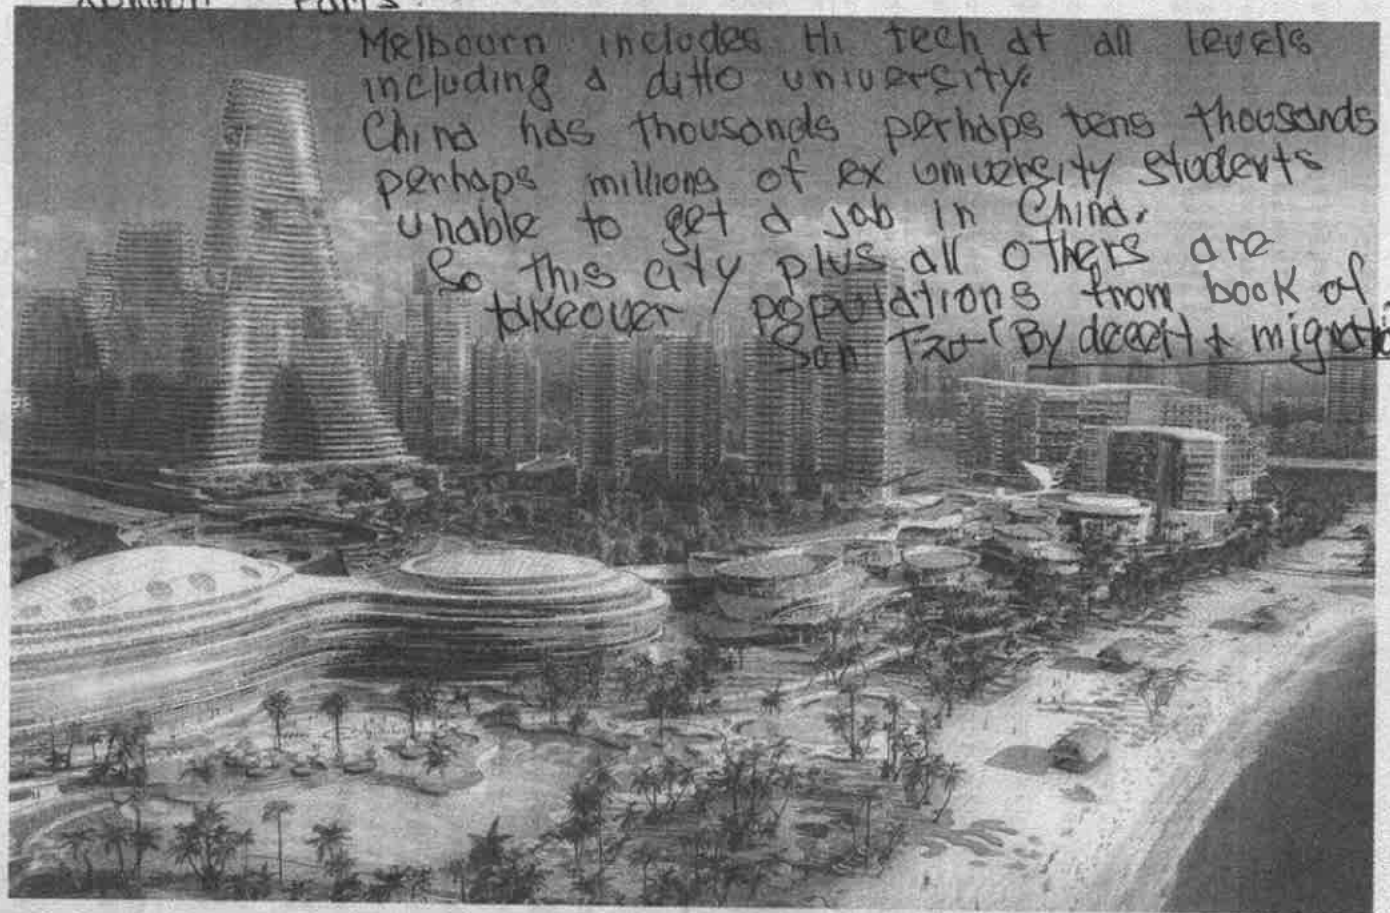 Melbourn includes Hi tech at all levels
including a ditto university.
China has thousands perhaps tens thousands
perhaps millions of ex university students
unable to get a job in China.
So this city plus all others are
takeover populations from book of
San Tzo (By deceit +